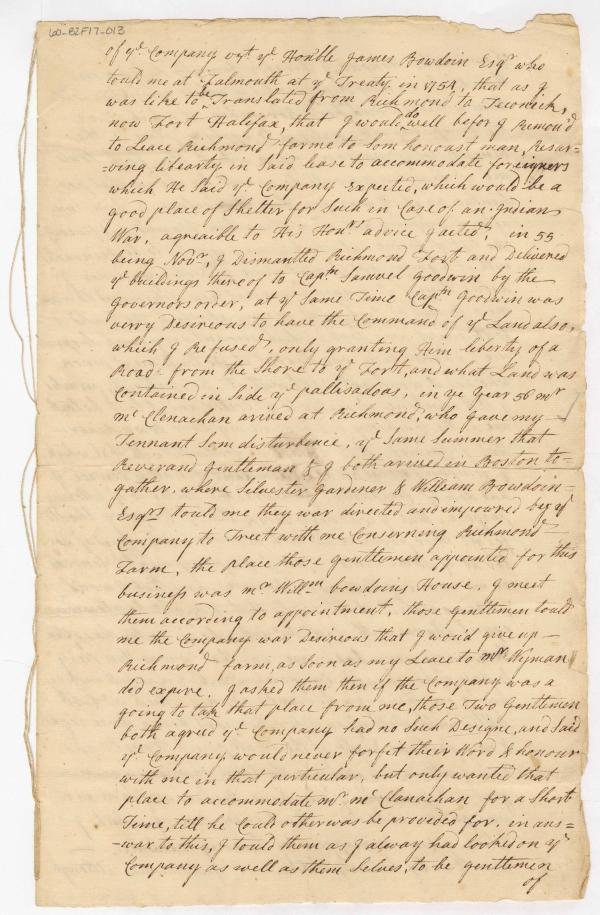 60-B2F17-013
of ye Company vizt ye Honble James Bowdoin Esqr who
tould me at Falmouth at ye Treaty in 1754, that as I
was like to be Translated from Richmond to Teconick,
now Fort Halifax, that I would do well befor I Remov'd
to Leace Richmond farme to Som honoust man, Resar=
=ving libearty in Said lease to accommodate foreigners
which He Said ye Company Expected, which would be a
good place of Shelter for Such in Case of an Indian
War, agreaible to His Honrs advice I acted, in 55
being Novr, I Dismantled Richmond Fort and Delivered
ye buildings there of to Captn Samuel Goodwin by the
Governors order, at ye Same Time Captn Goodwin was
verry Desireous to have the Command of ye Land also,
which I Refused, only granting Him liberty of a
Road from the Shore to ye Fort, and what Land was
Contained in Side ye pallisadoas, in ye Year 56 mr
mc Clenachan arived at Richmond, who gave my
Tennant Som disturbence, ye Same Summer that
Reverand Gentleman & I both arived in Boston to=
gather, where Silvester Gardiner & William Bowdoin
Esqrs tould me they war directed and impowred by ye
Company to Treet with me Conserning Richmond
Farm, the place those gentlemen appointed for this
business was mr Willm bowdoins House, I meet
them according to appointment, those Gentlemen tould
me the Company war Desireous that I wou'd give up
Richmond farm, as Soon as my Leace to mr Wyman
did expire. I asked them then if the Company was a
going to tak that place from me, those Two Gentlemen
both agreed ye Company had no Such Designe, and Said
ye Company would never forfit their Word & honour
with me in that perticular, but only wanted that
place to accommodate mr mc Clanachan for a Short
Time, till he Could otherwas be provided for. in ans=
=war to this, I tould them as I alway had looked on ye
Company as well as them Selves, to be gentlemen
of